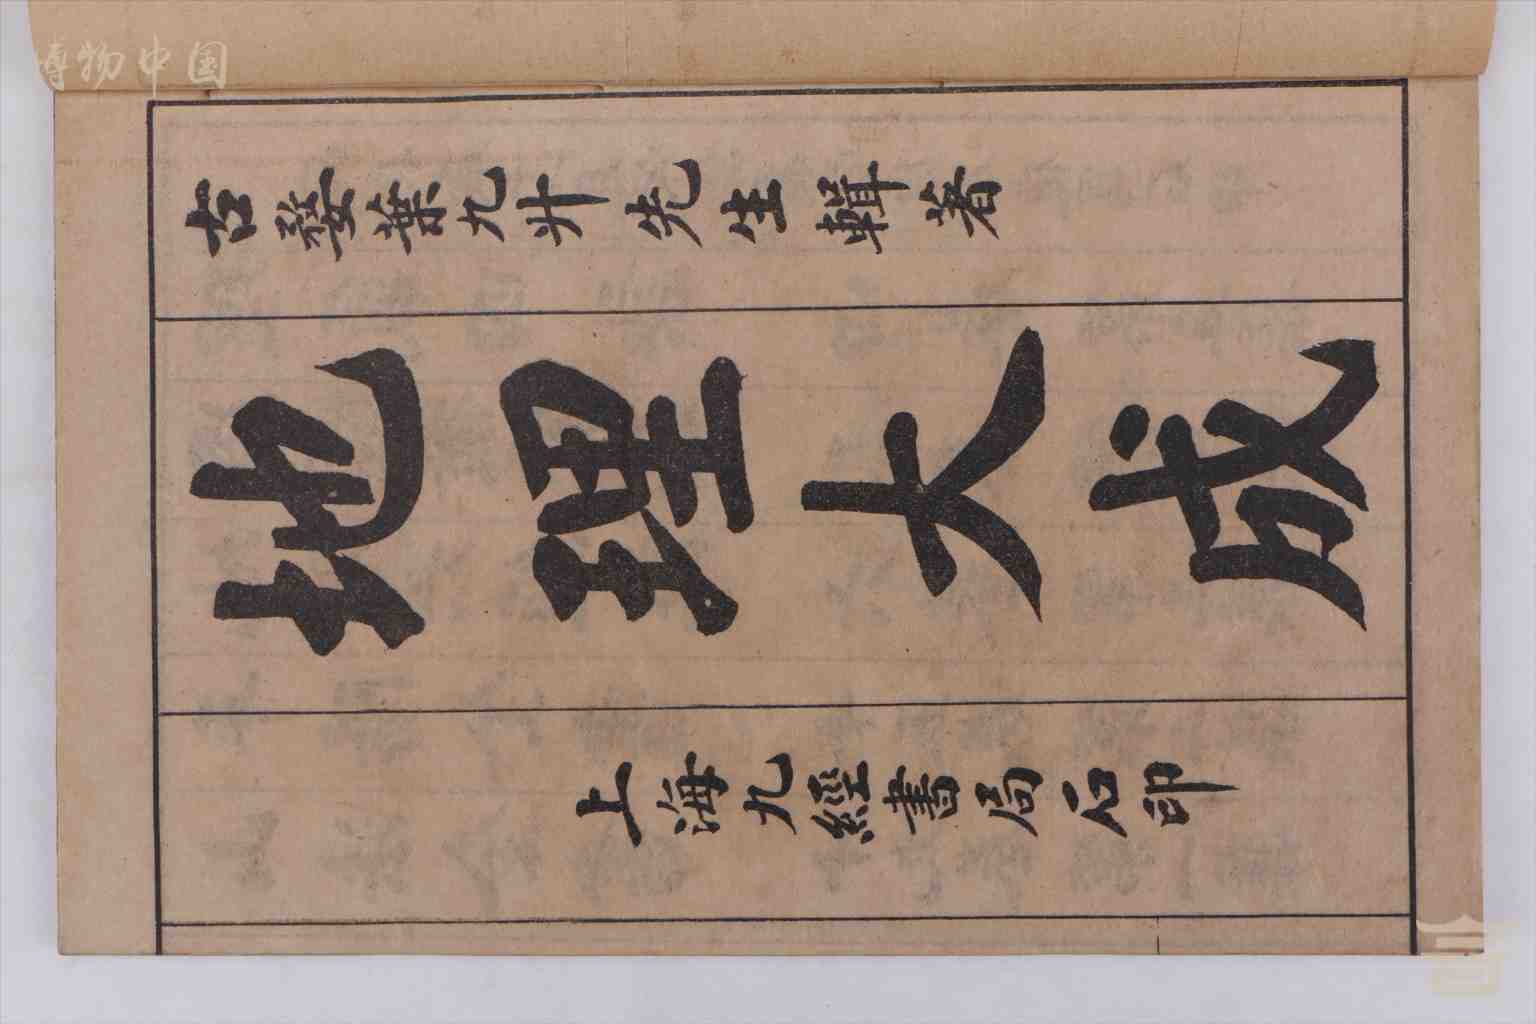 博物中国
古婺葉九升先生輯著
地理大成
上海九經書局石印